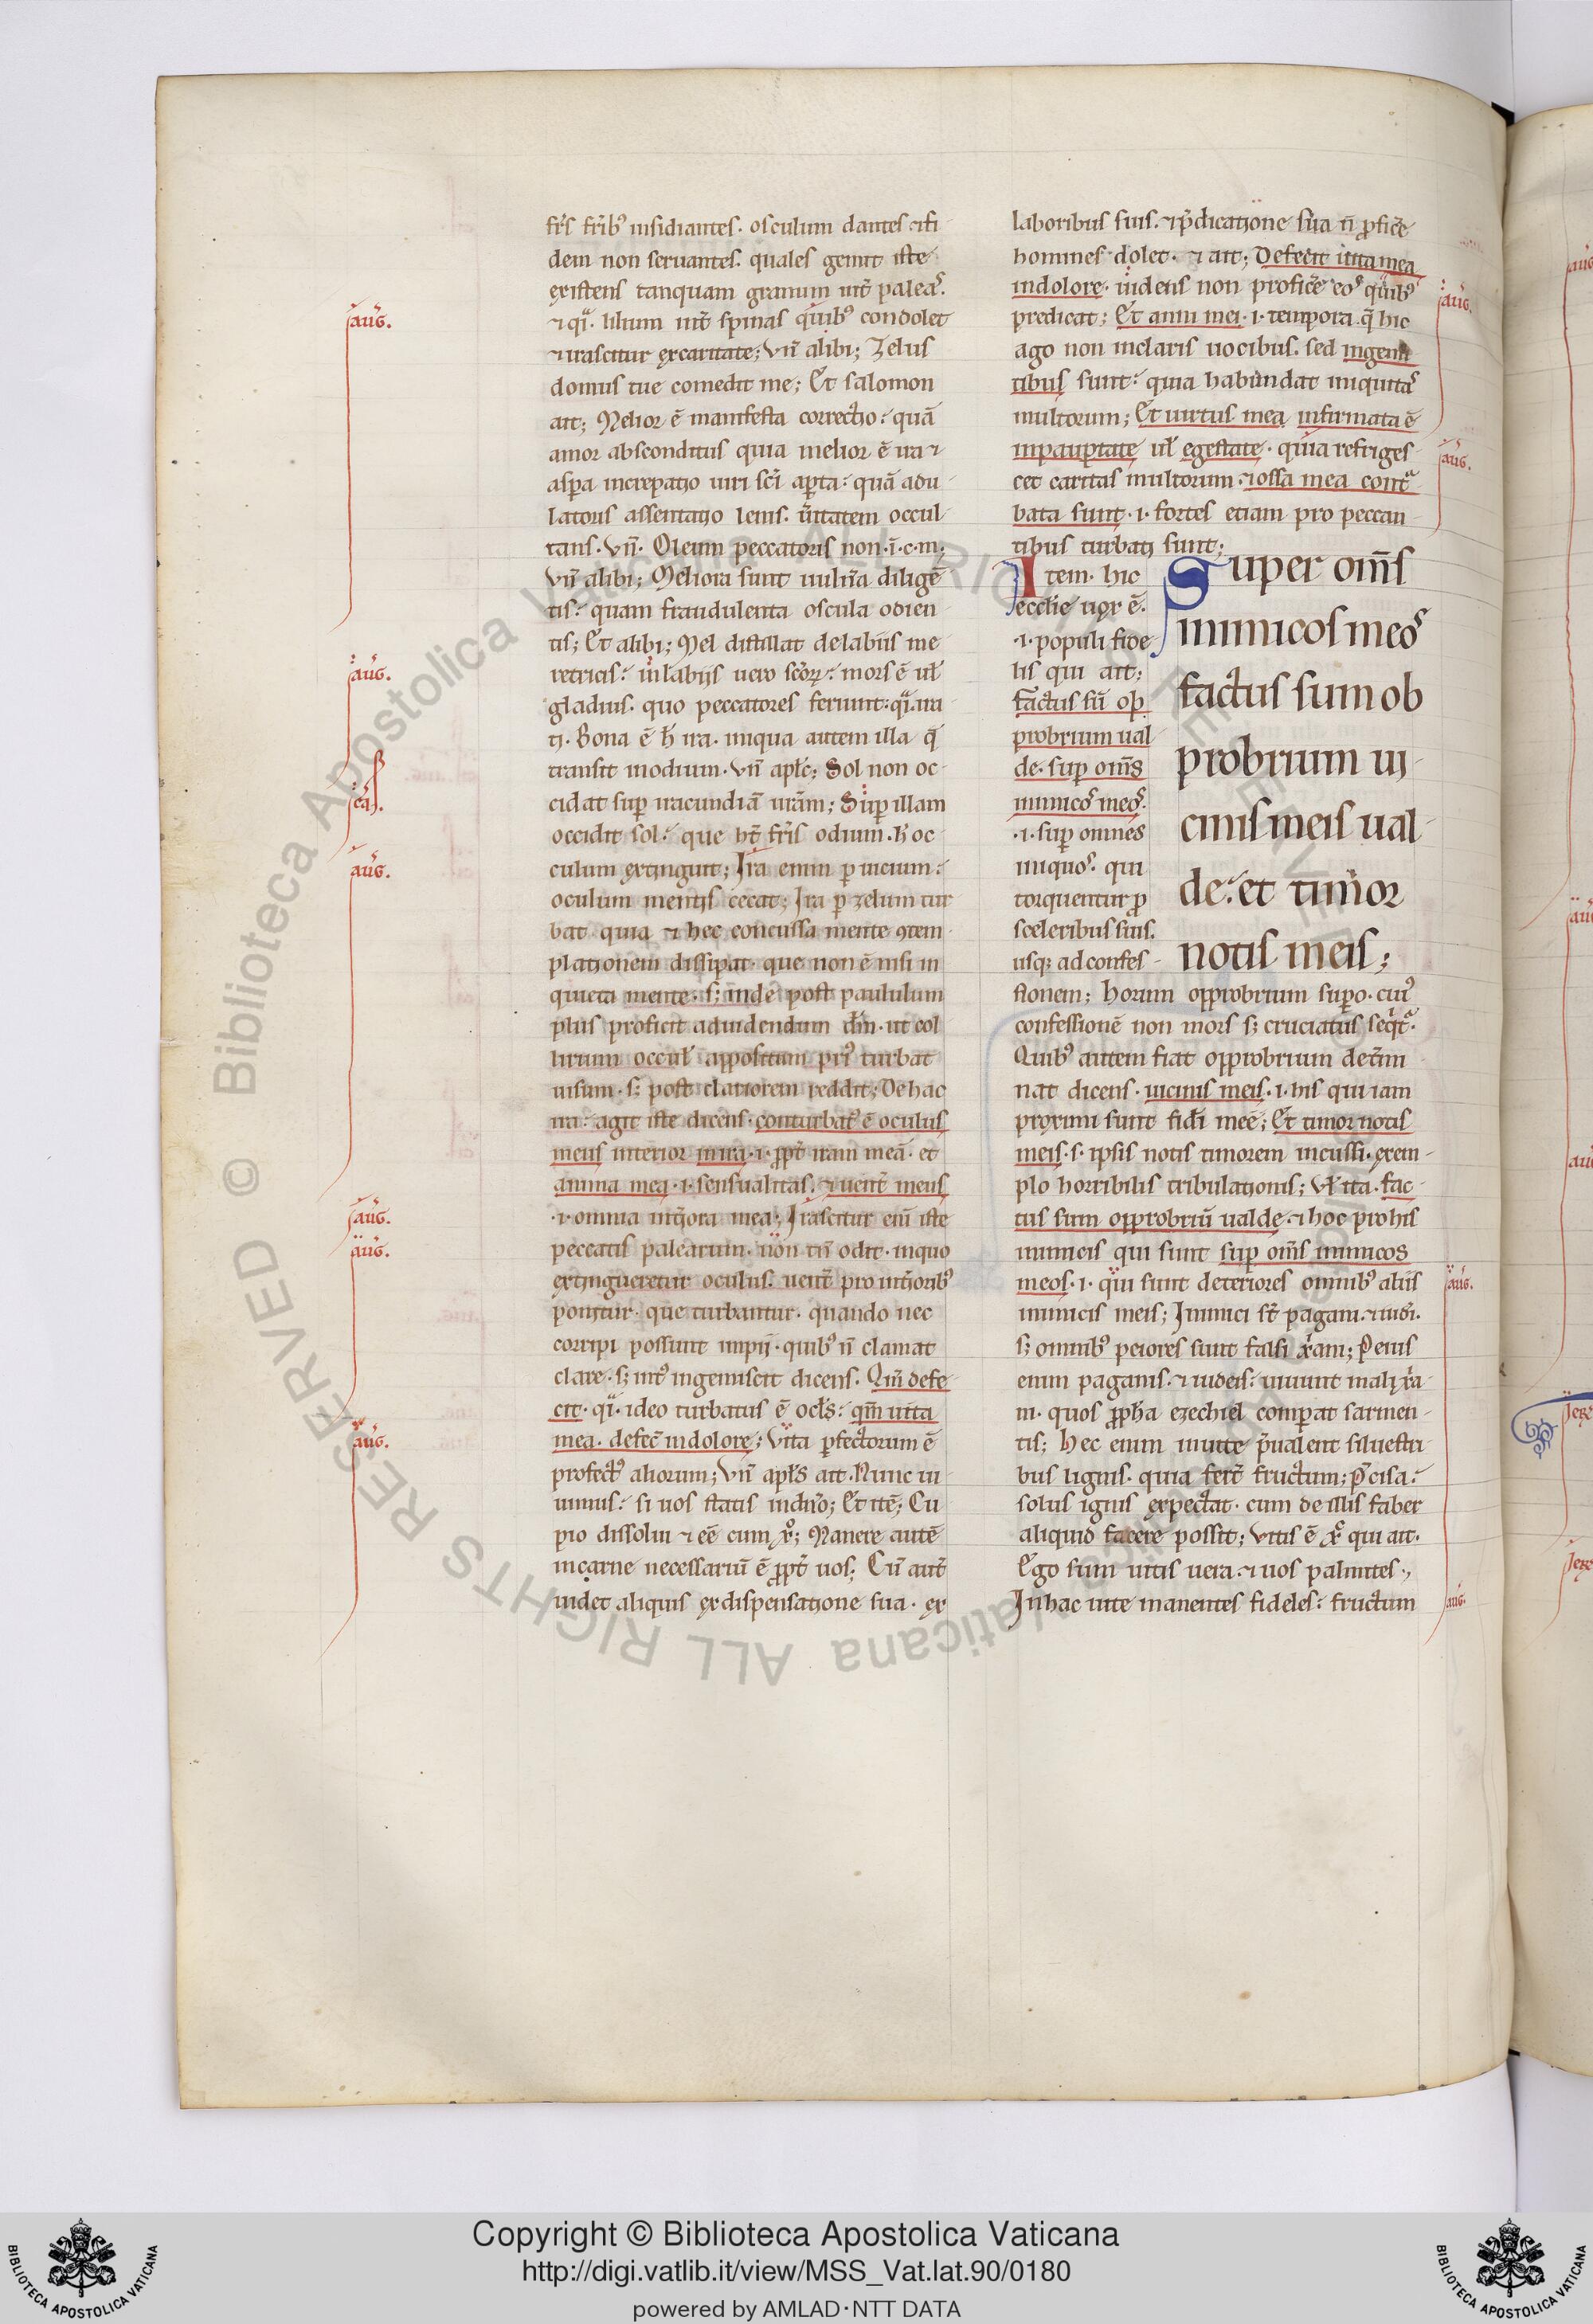 fr̄s fr̄ib⁹ insidiantes. osculum dantes ⁊ fi
dem non seruantes. quales gemit iste
existens tanquam granum int̄ paleas.
⁊ qͣi. lilium int̄ spinas quib⁹ condolet
⁊ irascitur ex caritate; Vn̄ alibi; Zelus
domus tue comedit me; Et salomon
ait; Melior ē manifesta correctio: quā
amor absconditus quia melior ē ira ⁊
asꝑa increpatio uiri sc̄i aꝑta: quā adu
latoris assentatio lenis. ūitatem occul-
tans. Vn̄. Oleum peccatoris non .i. c. m.
Vn̄ alibi; Meliora sunt uuln̄a diligē
tis: quam fraudulenta oscula odien
tis; Et alibi; Mel distillat de labiis me
retricis: in labiis uero sc̄oꝝ: mors ē ul̄
gladius. quo peccatores feriunt: qͣi. ira
ti. Bona ē h̄ ira. iniqua autem illa q̄
transit modium. Vn̄ apl̄c; Sol non oc-
cidat suꝑ iracundiā ur̄am; Suꝑ illam
occidit sol: que ht̄ fr̄is odium. h̄ oc-
culum extinguit; Ira enim ꝑ uicium:
oculum mentis cecat; Ira ꝑ zelum tur
bat quia ⁊ hec concussa mente ꝯtem
plationem dissipat. que non ē nisi in
quieta mente. sꝫ inde post paululum
plus proficit ad uidendum dm̄. ut col
lirium occul̄ appositum pri⁹ turbat
uisum. sꝫ post clariorem reddit; De hac
ira: agit iste dicens. conturbat⁹ ē oculus
meus interior in ira .i. ꝓpt̄ iram meā. et
anima mea .i. sensualitas. ⁊ uent̄ meus
.i. omnia int̄iora mea; Irascitur eni̅ iste
peccatis palearum. non tn̄ odit. in quo
extingueretur oculus. uent̄ pro int̄iorib⁹
ponitur. que turbantur. quando nec
corripi possunt impii. quib⁹ n̄ clamat
clare. sꝫ int⁹ ingemiscit dicens. Qm̄ defe
cit. qͣi. ideo turbatus ē ocl̄s: qm̄ uita
mea. defec̄ in dolore; Vita ꝑfectorum ē
profect⁹ aliorum; Vn̄ apl̄s ait. Nunc ui
uimus: si uos statis in dn̄o; Et itē; Cu
pio dissolui ⁊ eē cum xͦ; Manere autē
in carne necessariū ē ꝓpt̄ uos; Cū aut̄
uidet aliquis ex dispensatione sua. ex
laboribus suis. ⁊ p̄dicatione sua n̄ ꝓfic̄e
homines dolet. ⁊ ait; Defecit uita mea
in dolore. uidens non profic̄e eos quib⁹
predicat; Et anni mei .i. tempora q̄ hic
ago non in claris uocibus. sed in gemi
tibus sunt: quia habundat iniquitas
multorum; Et uirtus mea infirmata ē
in pauꝑtate ul̄ egestate. quia refriges-
cet caritas multorum. ⁊ ossa mea contͣ
bata sunt .i. fortes etiam pro peccan
tibus turbati sunt;
Item. hic
ecclie uox ē.
.i. populi fide
lis qui ait;
factus sū op
probrium ual
de. suꝑ om̄s
inimicos meos.
.i. suꝑ omnes
iniquos. qui
torquentur ꝓ
sceleribus suis.
usqꝫ ad confes-
Super om̄s
inimicos meos
factus sum ob
probrium ui
cinis meis ual
de: et timor
notis meis;
sionem; horum opprobrium suꝑo. cui⁹
confessionē non mors sꝫ cruciatus seqͥtͣ.
Quib⁹ autem fiat opprobrium det̄mi
nat dicens. uicinis meis .i. his qui iam
proximi sunt fidei meē; Et timor notis
meis. s. ipsis notis timorem incussi. exem-
plo horribilis tribulationis; Vl̄ ita. fac-
tus sum opprobriū ualde. ⁊ hoc pro his
inimicis qui sunt suꝑ om̄s inimicos
meos .i. qui sunt deteriores omnib⁹ aliis
inimicis meis; Inimici st̄ pagani. ⁊ iudi.
sꝫ omnib⁹ peiores sunt falsi xͥani; Peius
enim paganis. ⁊ iudeis: uiuunt mali xͥa
ni. quos ꝓpha ezechiel comꝑat sarmen-
tis; Hec enim in uite p̄ualent siluestri
bus lignis. quia fert̄ fructum; p̄cisa:
solus ignis expectat. cum de illis faber
aliquid facere possit; Vitis ē xͦ qui ait.
Ego sum uitis uera. ⁊ uos palmites.
In hac uite manentes fideles: fructum
aug.
aug.
cas.
aug.
aug.
aug.
aug.
aug.
aug.
aug.
aug.
Copyright © Biblioteca Apostolica Vaticana
http://digi.vatlib.it/view/MSS_Vat.lat.90/0180
powered by AMLAD·NTT DATA
BIBLIOTECA APOSTOLICA VATICANA
BIBLIOTECA APOSTOLICA VATICANA
© Biblioteca Apostolica Vaticana ALL RIGHTS RESERVED